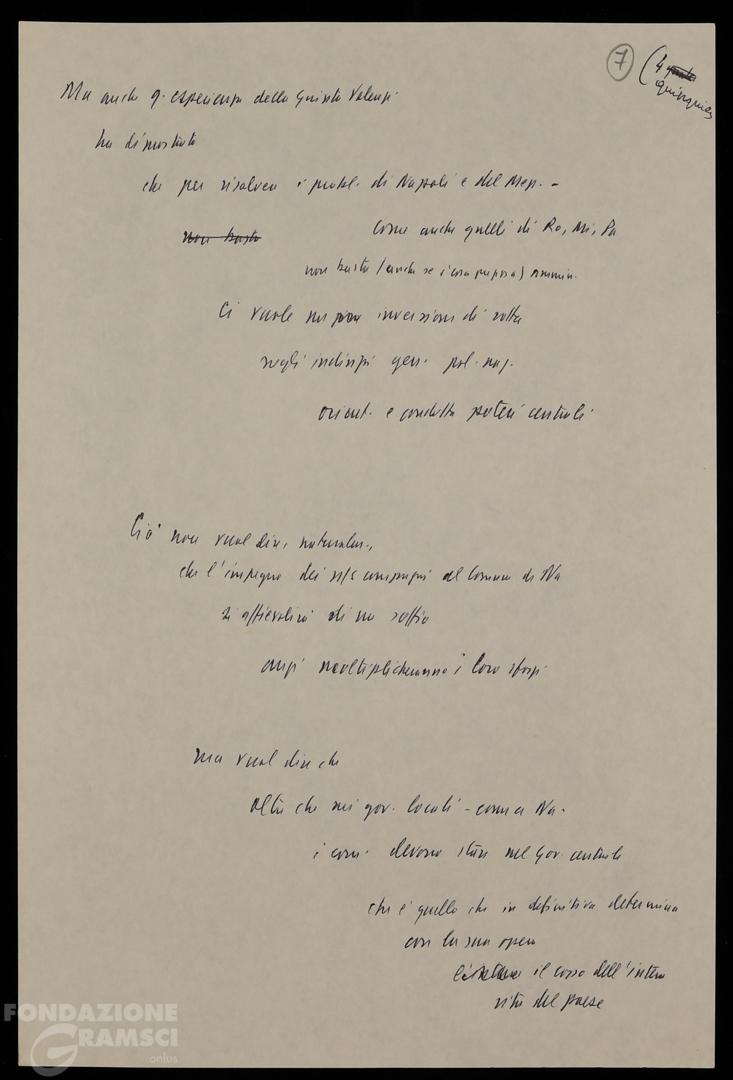 7 (4
quinquies
Ma anche q. esperienza della Giunta Valenzi
ha dimostrato
che per risolvere i probl. di Napoli e del Mezz. –
non basta come anche quelli di Ro, Mi, Pa
non basta (anche se è cosa preziosa) ammin.
Ci vuole inversione di rotta
negli indirizzi gen. pol. naz.
orient. e condotta poteri centrali
Ciò non vuol dire, naturalm.,
che l'impegno dei n/s compagni al Comune di Na
si affievolirà di un soffio
anzi moltiplicheranno i loro sforzi
ma vuol dire che
oltre che nei gov. locali – come a Na –
i com. devono stare nel Gov. centrale
che è quello che in definitiva determina
con la sua opera
il corso dell'intera
vita del paese
FONDAZIONE
GRAMSCI
onlus